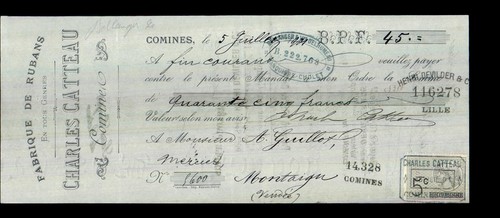 FABRIQUE DE RUBANS
EN TOUS GENRES
CHARLES CATTEAU
à Comines
COMINES, le 5 Juillet B.P.F. 45.=
B. 222.768
A fin courant veuillez payer
contre le présent Mandat Ordre la somme
HENRI DEVILDER & C
116278
LILLE
de Quarante cinq francs
Valeur selon mon avis. Charles Catteau
A Monsieur A. Guillot,
Merrier
14.328
COMINES
CHARLES CATTEAU
No 1600 Montaigu
(Vendée)
5c